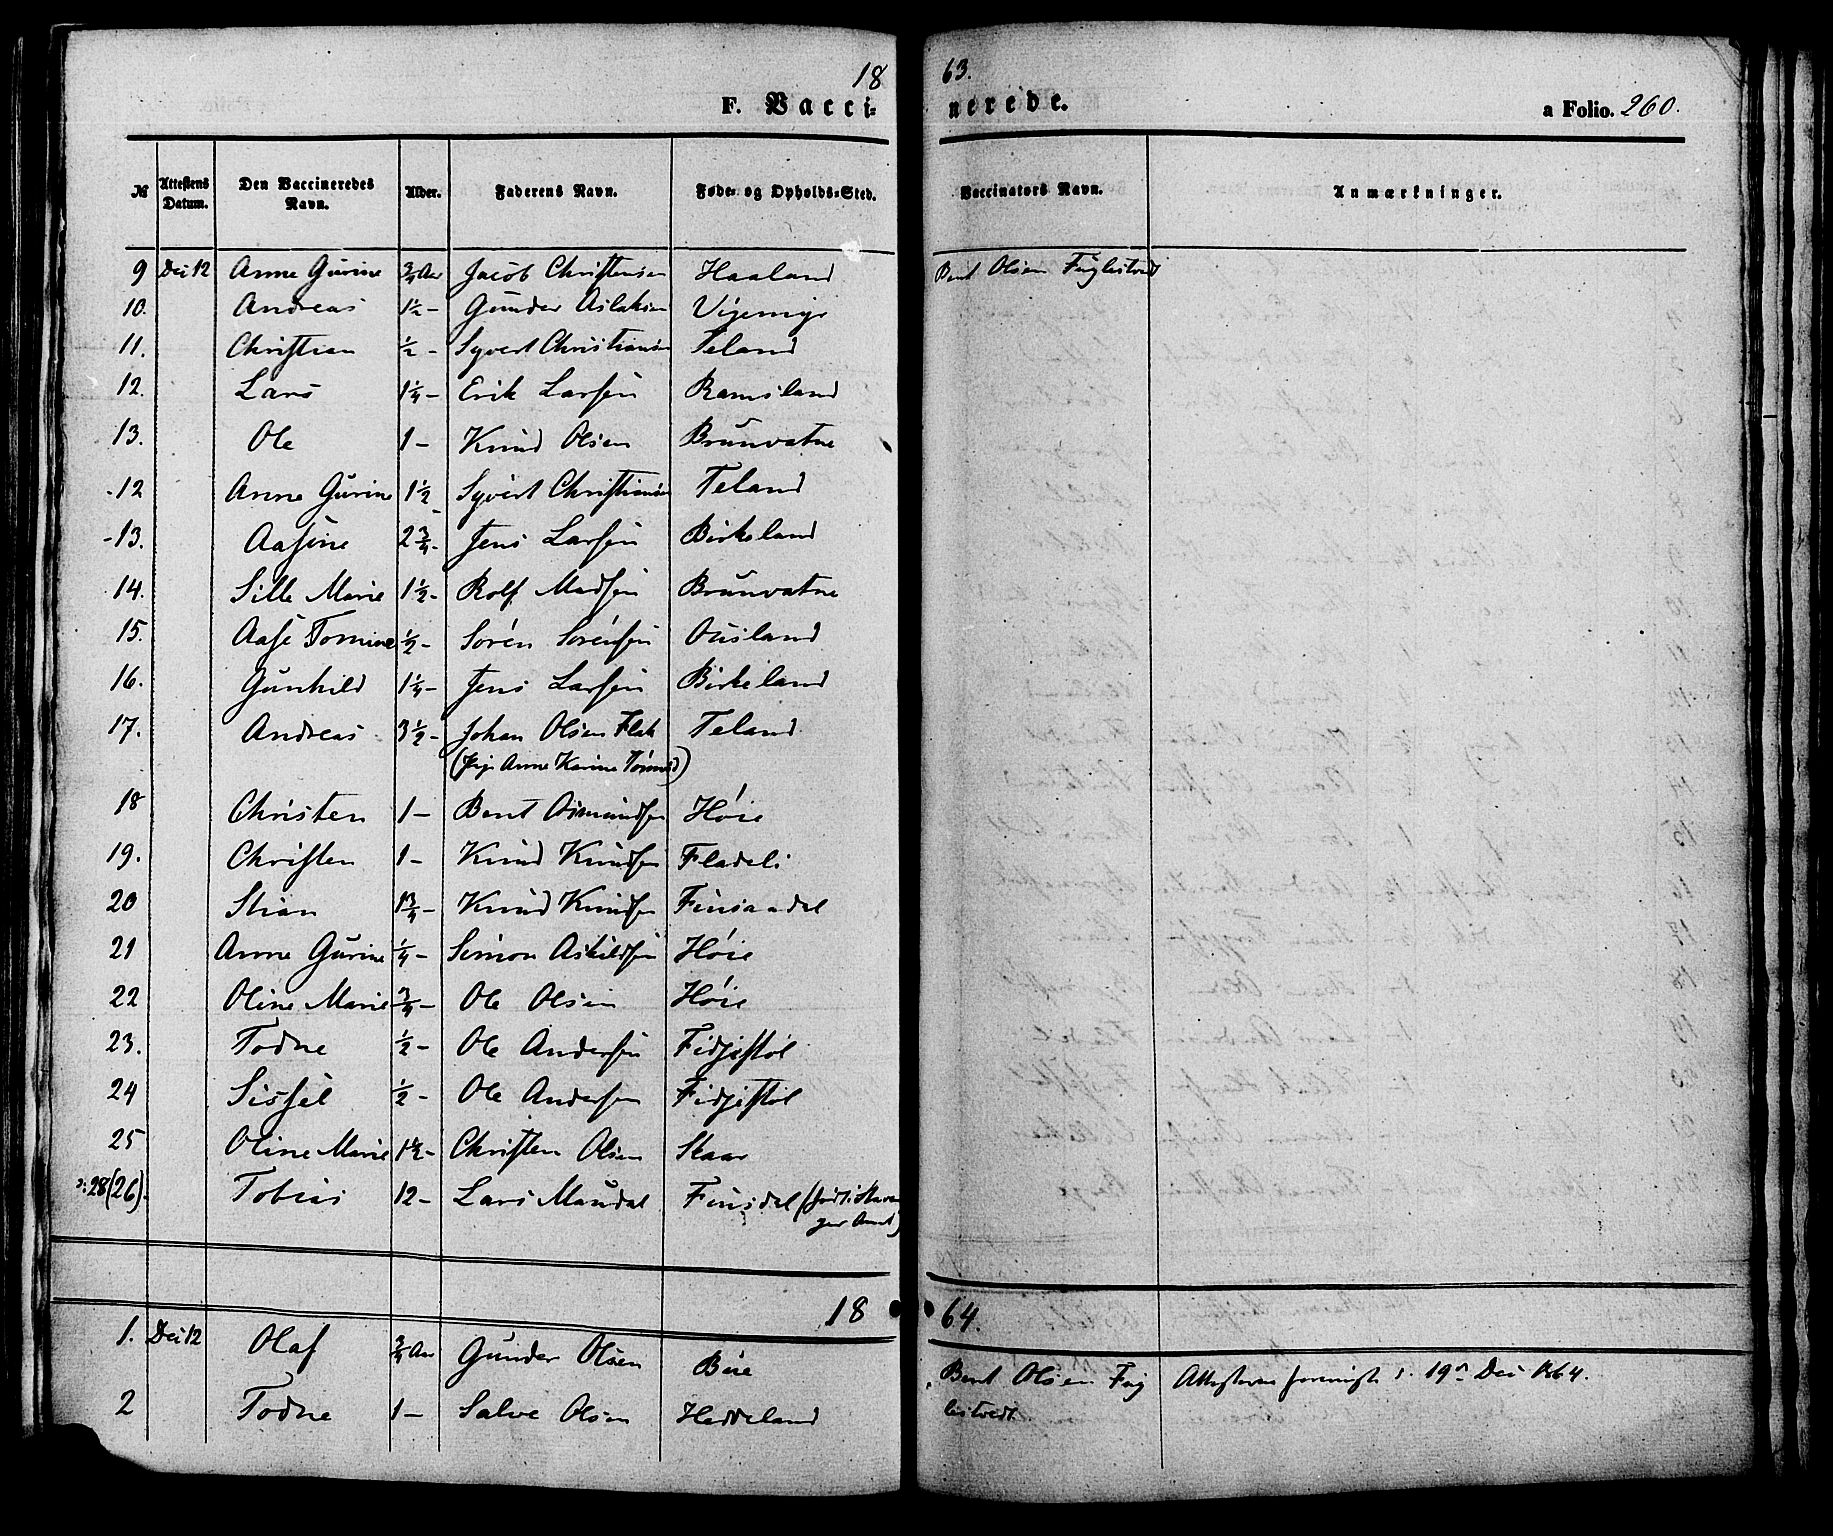 1863.
F. Vaccinerede. a Folio. 260.
№ Attestens Datum. Den Vaccineredes Navn. Alder. Faderens Navn. Føde- og Opholds-Sted. Vaccinators Navn. Anmærkninger.
9 Dec 12 Anne Gurine 3/4 Aar Jacob Christensen Haaland Bent Olsen Fuglestvedt
10. Andreas 1 1/2 - Gunder Aslaksen Vigemyr
11. Christian 1/2 - Syvert Christiansen Teland
12. Lars 1 1/4 - Erik Larsen Ramsland
13. Ole 1 - Knud Olsen Brunvatne
-12 Anne Gurine 1 1/2 - Syvert Christiansen Teland
-13. Aasine 2 3/4 - Jens Larsen Birkeland
14. Sille Marie 1 1/2 - Rolf Madsen Brunvatne
15. Aase Tomine 1/2 - Sorén Sorénsen Ousland
16. Gunhild 1 1/4 - Jens Larsen Birkeland
17. Andreas 3 1/2 - Johan Olsen Flak Teland
(Pige Anne Karine Tønnesd)
18 Christen 1 - Bent Asmundsen Høie
19. Christen 1 - Knud Knudsen Fladeli
20 Stian 1 3/4 - Knud Knudsen Finsaadal
21 Anne Gurine 1/4 - Simon Askildsen Høie
22 Oline Marie 3/4 - Ole Olsen Høie
23. Todne 1/2 - Ole Andersen Fidjestøl
24 Sissel 1/2 - Ole Andersen Fidjestøl
25 Oline Marie 1 1/2 - Christen Olsen Skaar
ↄ: 28 (26). Tobias 12 - Lars Maudal Finsdal (født i Stavan
ger Amt)
1864.
1. Dec 12 Olaf 3/4 Aar Gunder Olsen Bue Bent Olsen Fug Attesterne 19n Dec 1864.
2 Todne 1 - Salve Olsen Heddeland lestvedt